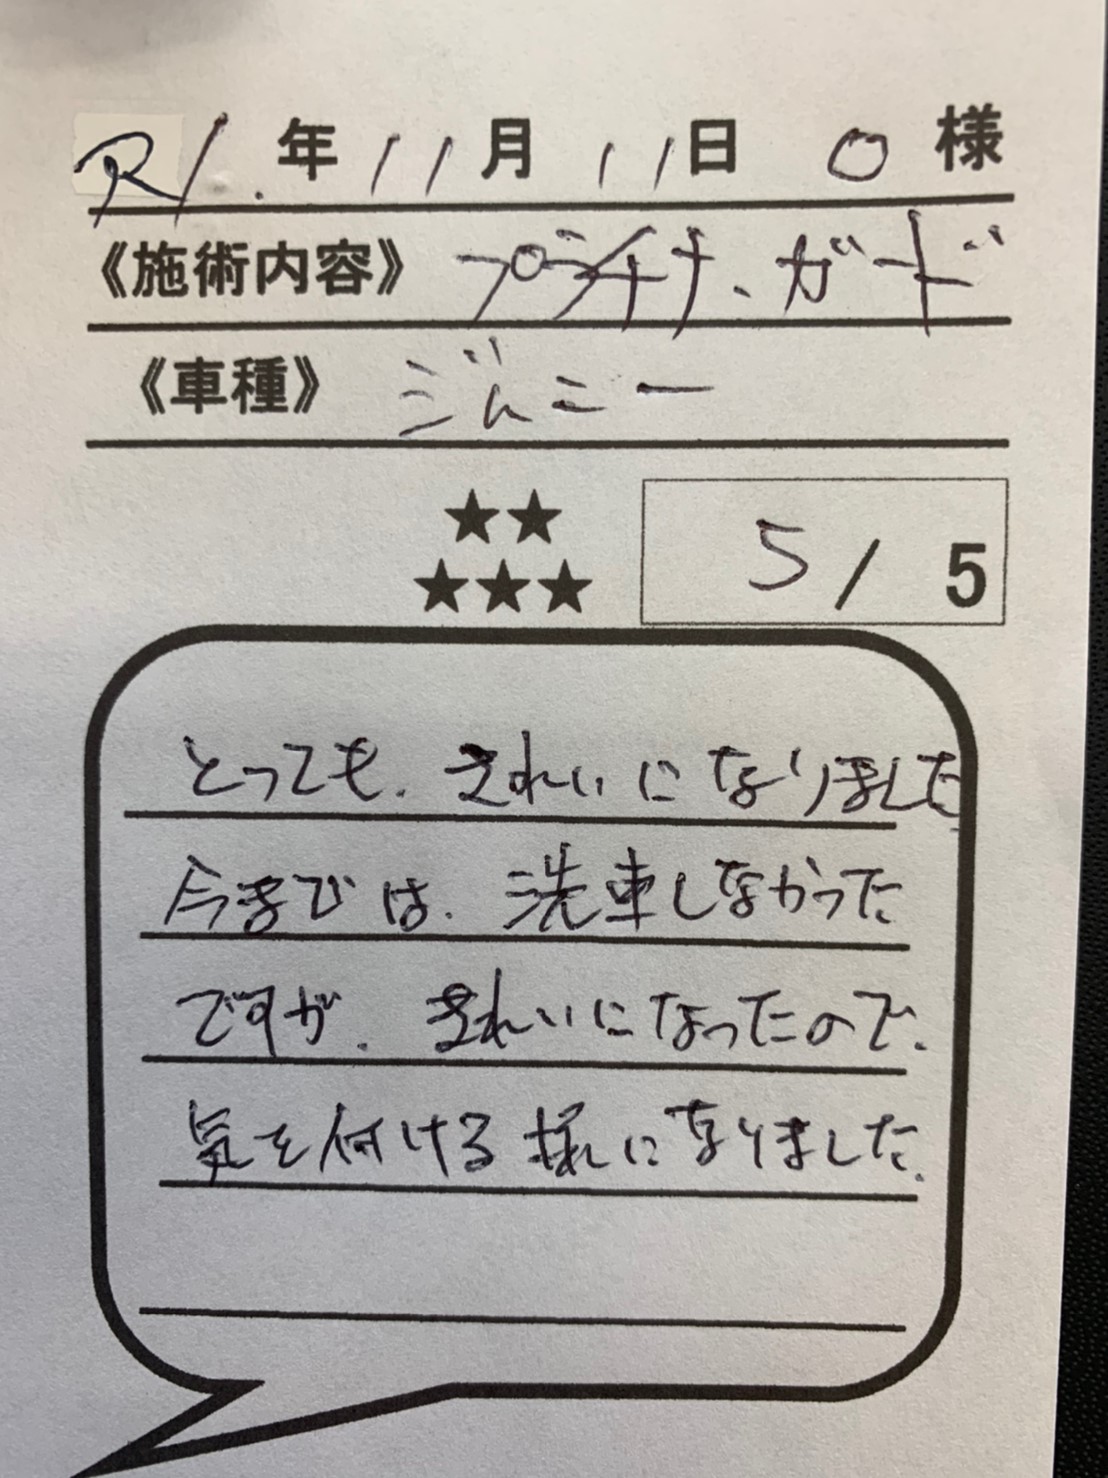 R1.年11月11日 O様
《施術内容》プラチナ、ガード
《車種》ジムニー
★★
★★★
5/5
とっても、きれいになりました
今までは、洗車しなかった
ですが、きれいになったので、
気を付ける様になりました。